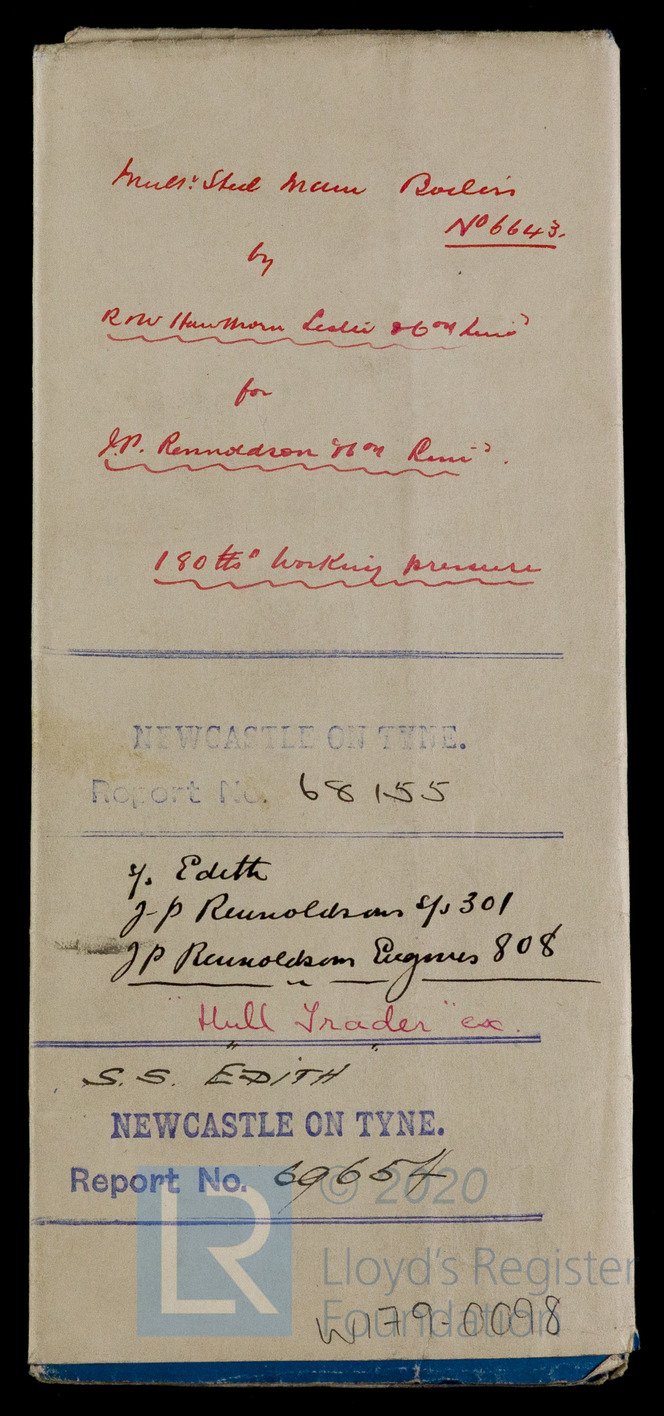 Mult: Steel Main Boilers
Nº 6643.
by
R & W Hawthorn Leslie & Coy Limd
for
J.P. Rennoldson & Coy Limd.
180 lbs" working pressure
NEWCASTLE ON TYNE.
Report No. 68155
s/s Edith
J-P Rennoldson s/s 301
JP Rennoldson Engines 808
"Hull Trader" ex.
S.S. "EDITH"
NEWCASTLE ON TYNE.
Report No. 69654
LR © 2020
Lloyd's Register
Foundation
W179-0098